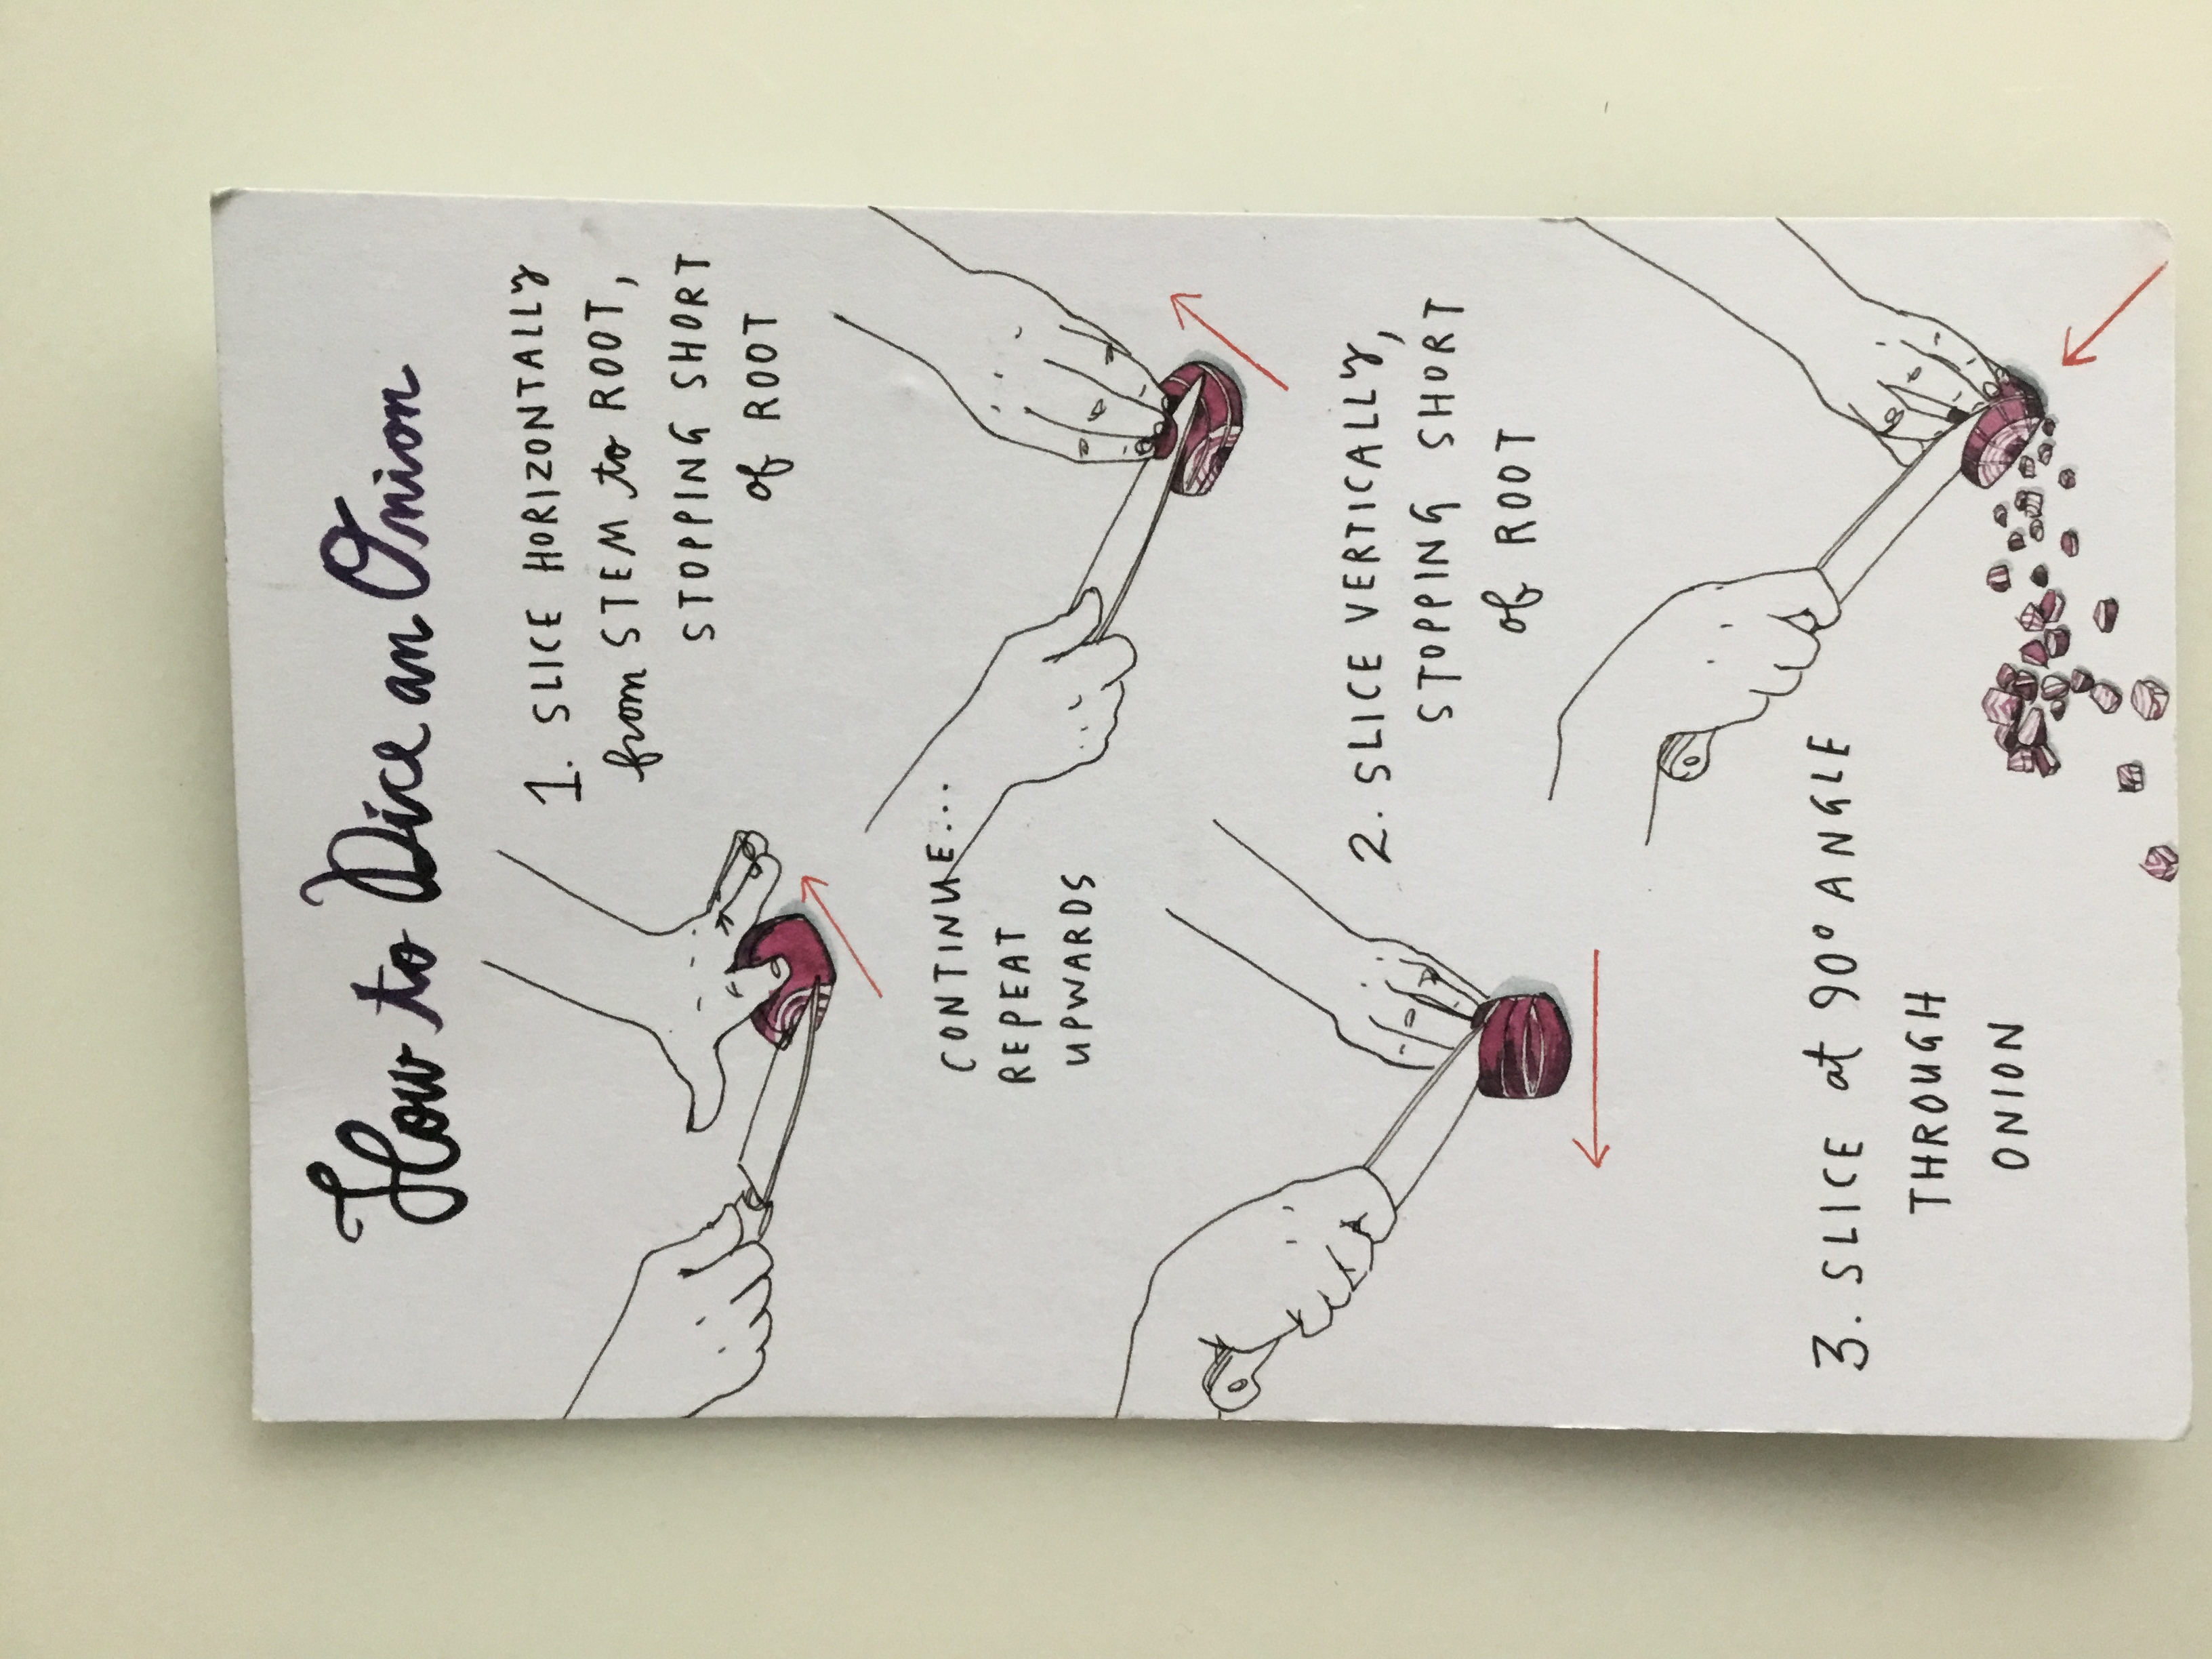 How to Dice an Onion
1. SLICE HORIZONTALLY
from STEM to ROOT,
STOPPING SHORT
of ROOT
CONTINUE...
REPEAT
UPWARDS
2. SLICE VERTICALLY,
STOPPING SHORT
of ROOT
3. SLICE at 90° ANGLE
THROUGH
ONION